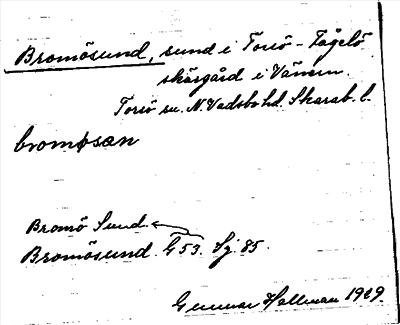 Bromösund, sund i Torsö - Fågelö
skärgård i Vänern.
Torsö sn. N. Vadsbo hd. Skarab. l.
bromøsæn
Bromö Sund
Bromösund G 53. Sj. 85.
Gunnar Hallman 1919.